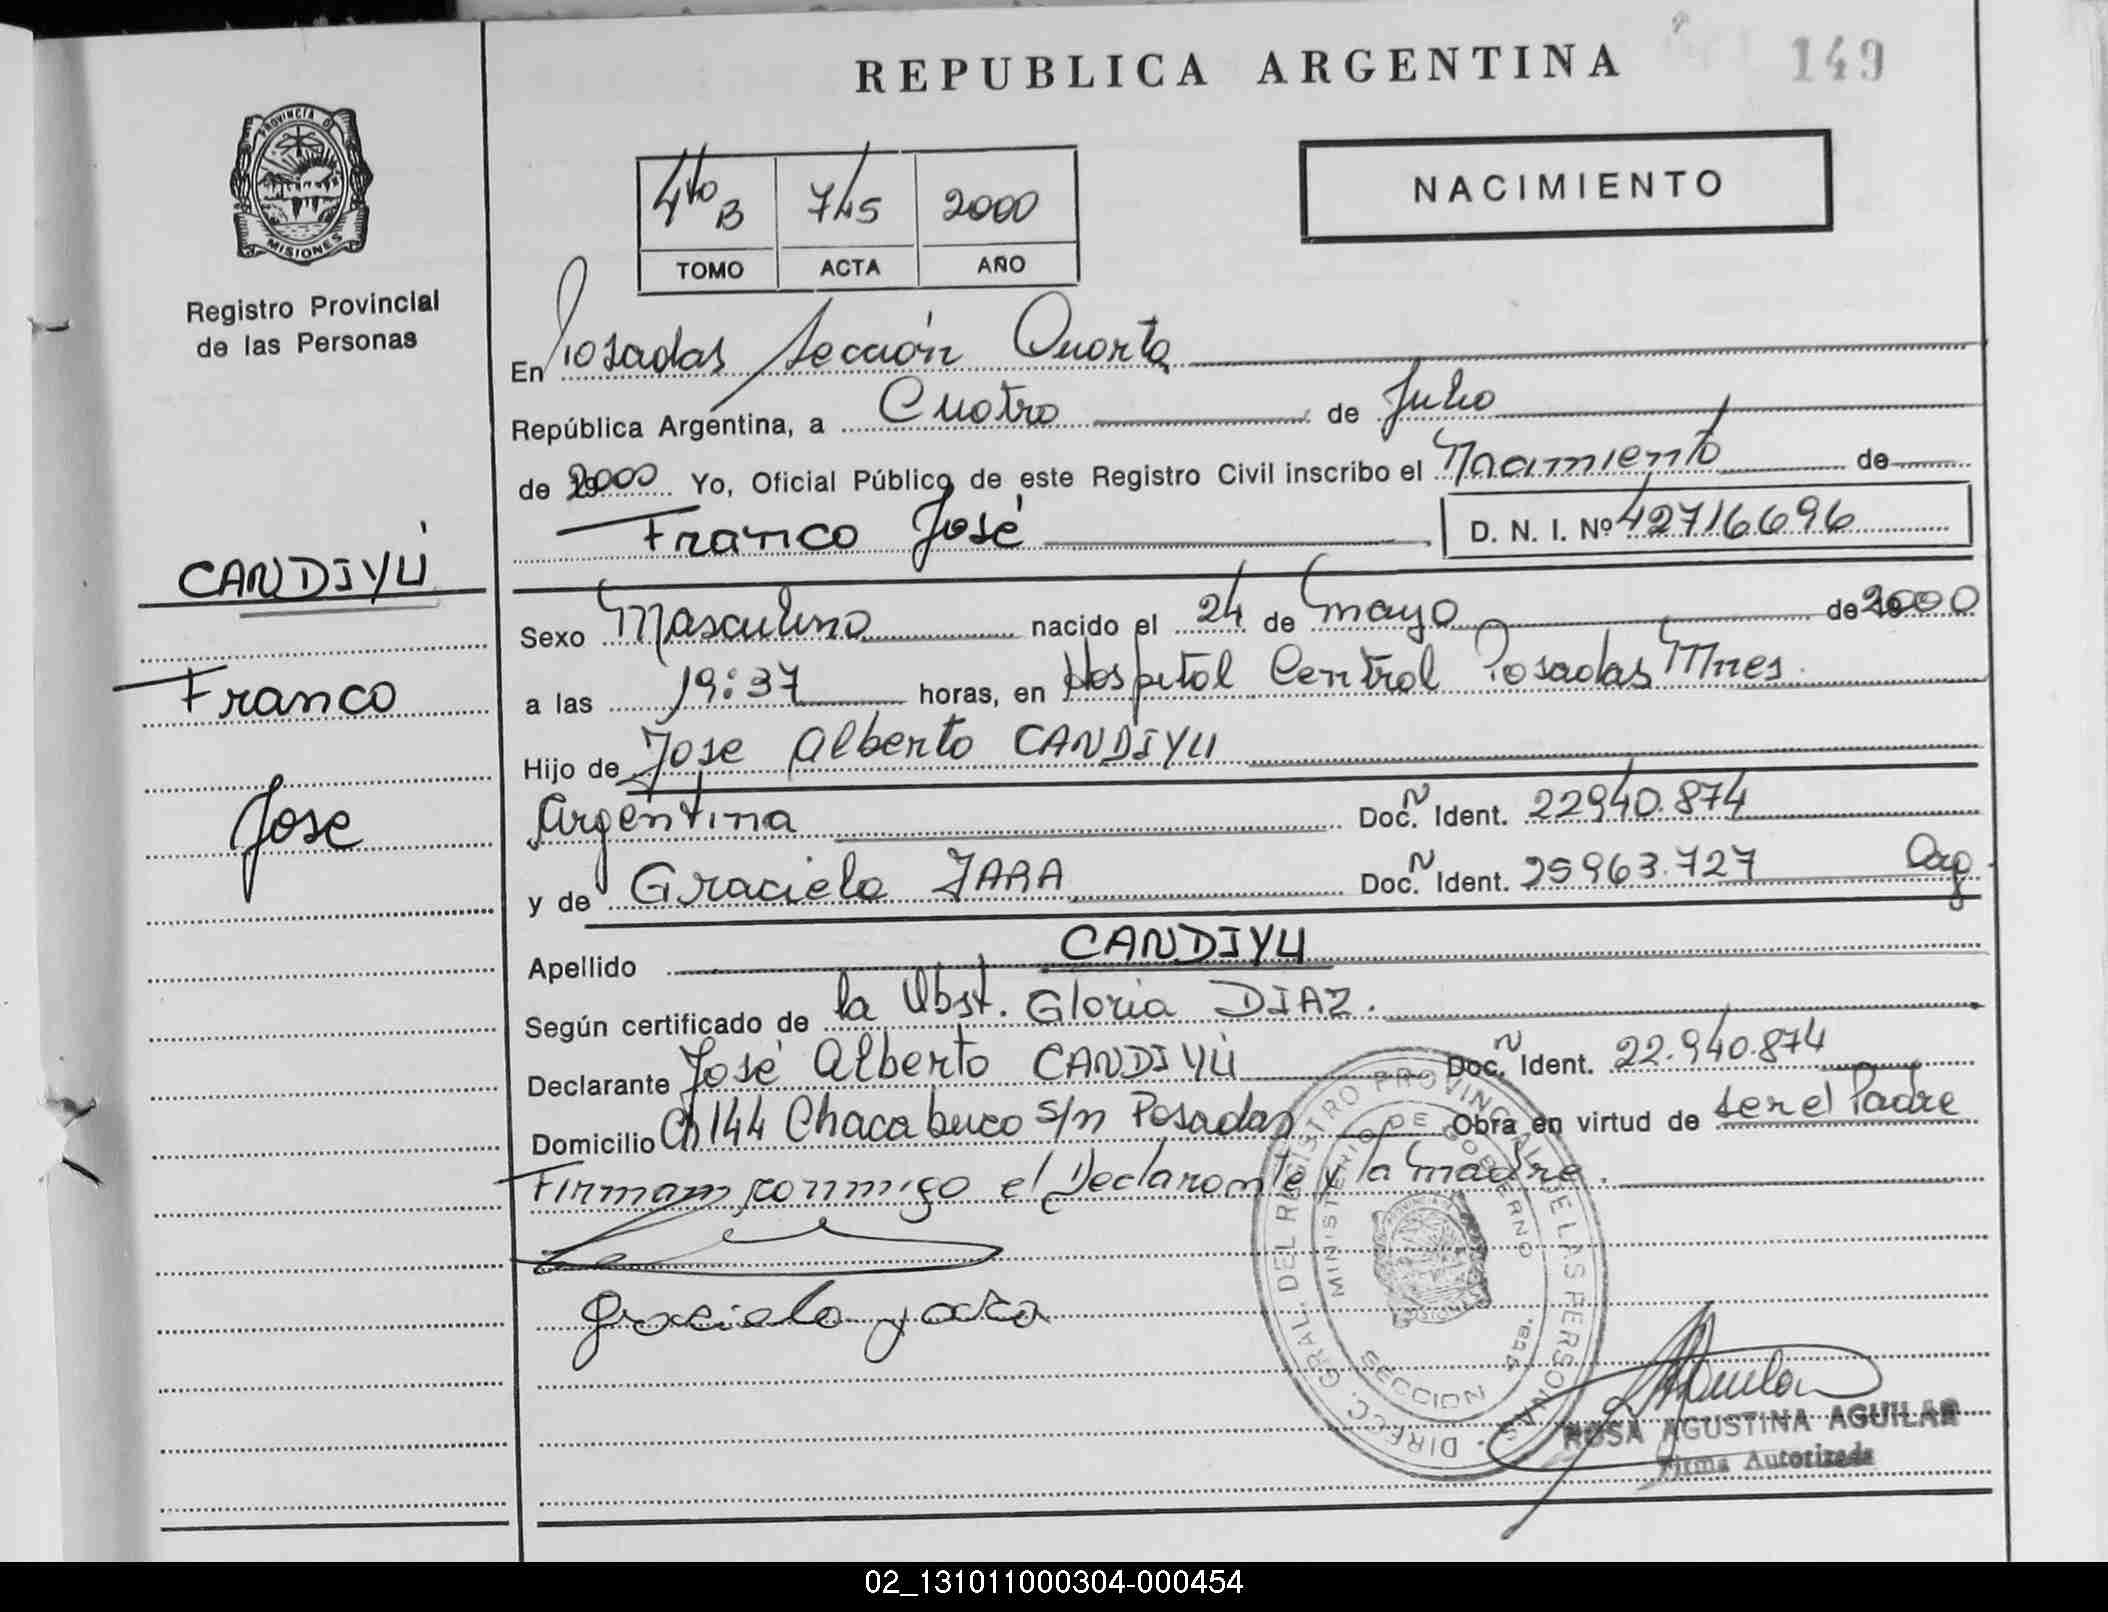 REPUBLICA ARGENTINA
149
PROVINCIA DE
MISIONES
Registro Provincial
de las Personas
4to B 745 2000
TOMO ACTA AÑO
NACIMIENTO
En Posadas Sección Cuarta
República Argentina, a Cuatro de Julio
de 2000 Yo, Oficial Público de este Registro Civil inscribo el Nacimiento de
Franco José D. N. I. Nº 42716696
CANDIYÚ
Franco
Jose
Sexo Masculino nacido el 24 de mayo de 2000
a las 19:37 horas, en Hospital Central Posadas Mnes.
Hijo de Jose Alberto CANDIYU
Argentina Doc. N Ident. 22940.874
y de Graciela JARA Doc. Ñ Ident. 25963.727 Arg.
Apellido CANDIYU
Según certificado de la Obst. Gloria DIAZ.
Declarante José Alberto CANDIYÚ Doc. Ñ Ident. 22.940.874
Domicilio Ch 144 Chacabuco s/n Posadas Obra en virtud de ser el Padre
Firman conmigo el Declarante y la madre.
Graciela Jara
DIRECC. GRAL. DEL REGISTRO PROVINCIAL DE LAS PERSONAS
MINISTERIO DE GOBIERNO
SECCION 4ta.
ROSA AGUSTINA AGUILAR
Firma Autorizada
02_131011000304-000454